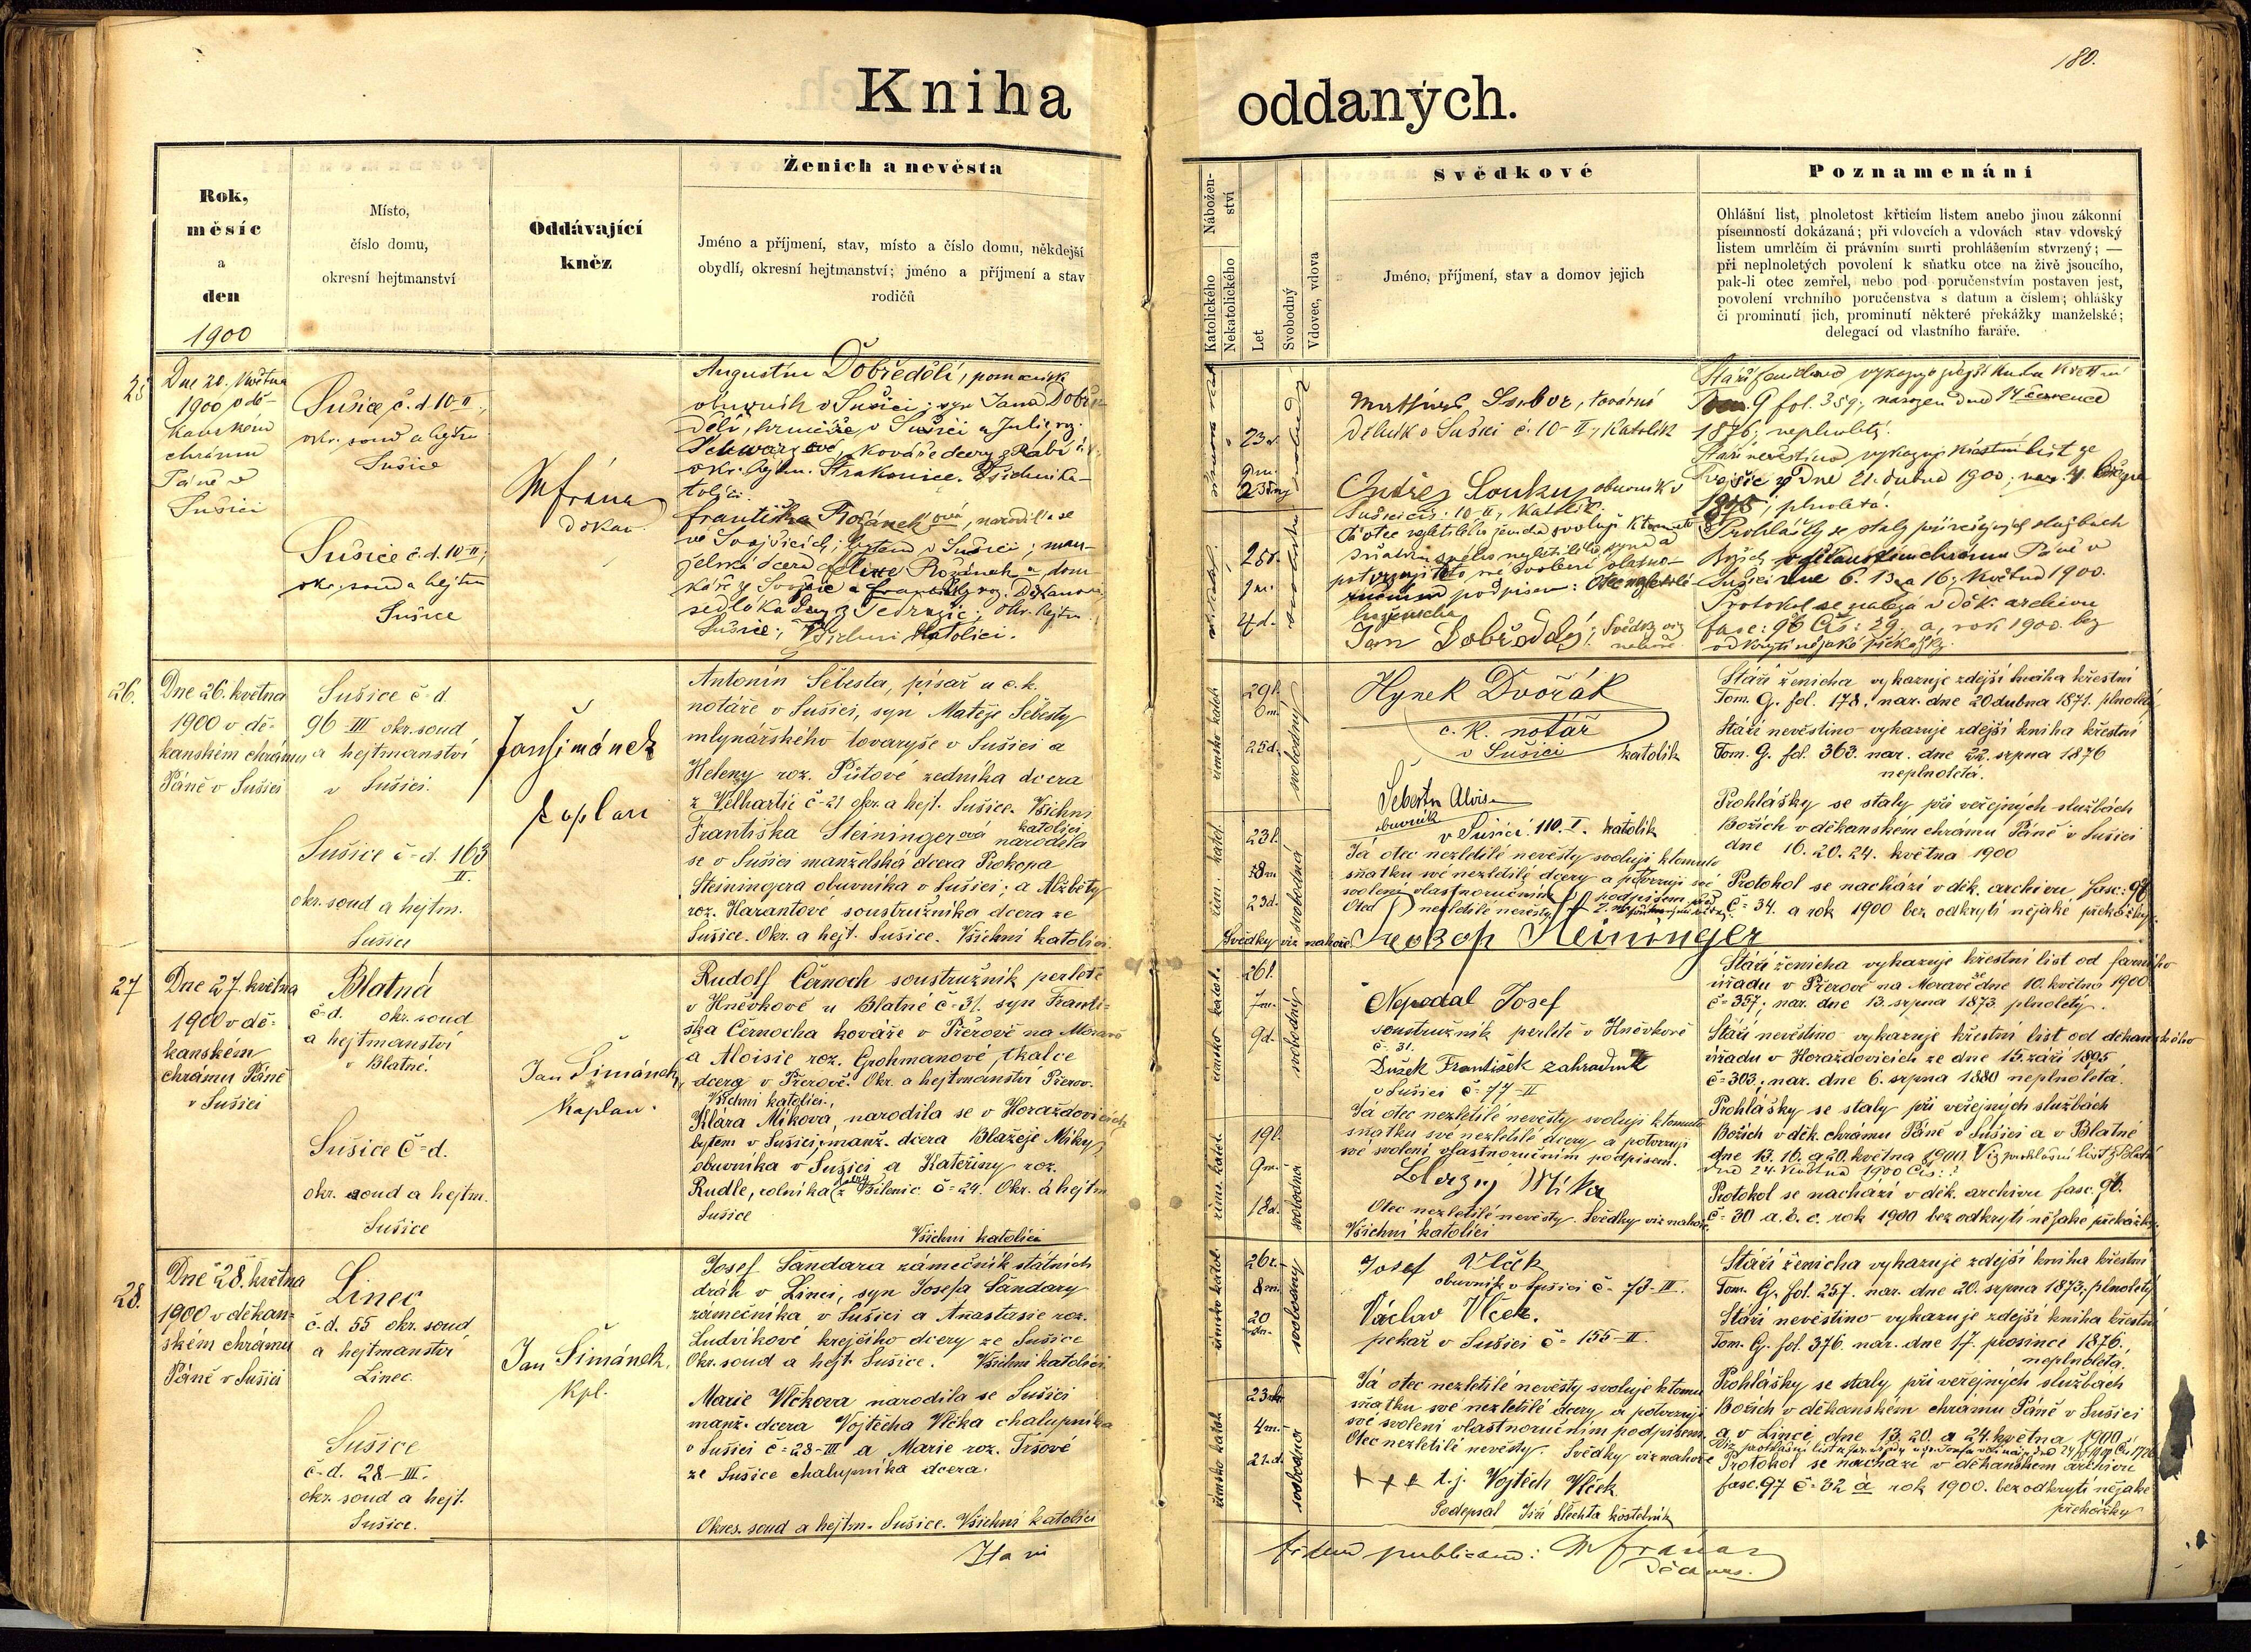 180.
Kniha oddaných.
Rok,
měsíc
a
den
1900
Místo,
číslo domu,
okresní hejtmanství
Oddávající
kněz
Ženich a nevěsta
Jméno a příjmení, stav, místo a číslo domu, někdejší
obydlí, okresní hejtmanství; jméno a příjmení a stav
rodičů
Nábožen-
ství
Katolického
Nekatolického
Let
Svobodný
Vdovec, vdova
Svědkové
Jméno, příjmení, stav a domov jejich
Poznamenání
Ohlášní list, plnoletost křticím listem anebo jinou zákonní
písemností dokázaná; při vdovcích a vdovách stav vdovský
listem umrlčím či právním smrti prohlášením stvrzený; —
při neplnoletých povolení k sňatku otce na živě jsoucího,
pak-li otec zemřel, nebo pod poručenstvím postaven jest,
povolení vrchního poručenstva s datum a číslem; ohlášky
či prominutí jich, prominutí některé překážky manželské;
delegací od vlastního faráře.
25
Dne 20. května
1900 v dě-
kanském
chrámu
Páně v
Sušici
Sušice č. d. 10-II;
okr. soud a hejtm
Sušice
Sušice č. d. 10-II;
okr. soud a hejtm
Sušice
M frána
děkan.
Augustin Dobředělí, pomocník
obuvník v Sušici; syn Jana Dobře-
dělí, v Sušici a Julie roz.
Schwarzové, kováře dcery z Rabí
okr. hejtm. Strakonice. Všichni ka-
tolíci.
Františka Rožánek ová, narodila se
ve Svojšicích; bytem v Sušici; man-
želská dcera Rožánek a dom-
káře z Svojšic a Františky roz.
sedláka dcery z okr. hejtm.
Sušice; Všichni katolíci.
23 r.
9 m.
23 dny
25 r.
1 m.
4 d.
továrně
dělník v Sušici č. 10-II; katolík
Ondřej Soukup obuvník v
Sušici čís. 10-II; katolík.
Já otec nezletilého ženicha svoluji k tomuto
sňatku svého nezletilého syna a
potvrzuji toto mé svolení vlastno-
ručním podpisem: Otec nezletilého
ženicha
Jan Dobředělý; Svědky viz
nahoře.
Stáří ženichovo vykazuje zdejší kniha křestní
Tom. G fol. 359; narozen dne 14 července
1876; neplnoletý.
Stáří nevěstino vykazuje křestní list ze
Svojšic z dne 21. dubna 1900; nar.
1875; plnoletá.
Prohlášky se staly při veřejných službách
Božích v děkanském chrámu Páně v
Sušici dne 6. 13 a 16; května 1900.
Protokol se nalézá v děk. archivu
fasc: 96 Čís: 29. a, rok 1900. bez
odkrytí nějaké překážky.
26.
Dne 26. května
1900 v dě-
kanském chrámu
Páně v Sušici
Sušice č-d.
96-III okr. soud
a hejtmanství
v Sušici.
Sušice č-d. 163
II.
okr. soud a hejtm.
Sušice
Jan Šimánek
kaplan
Antonín Šebesta, písař u c. k.
notáře v Sušici, syn Matěje Šebesty
mlynářského tovaryše v Sušici a
Heleny roz. Půtové zedníka dcera
z Velhartic č-21 okr. a hejt. Sušice. Všichni
katolíci
Františka Steininger ová narodila
se v Sušici manželská dcera Prokopa
Steiningera obuvníka v Sušici; a Alžběty
roz. Harantové soustružníka dcera ze
Sušice. Okr. a hejt. Sušice. Všichni katolíci.
římsko katol.
29 l.
0 m.
25 d.
svobodný
řím. katol.
23 l.
8 m
23 d.
svobodná
Hynek Dvořák
c. k. notář
v Sušici katolík
Šebesta Alois
obuvník
v Sušici 110. I. katolík
Já otec nezletilé nevěsty svoluji k tomuto
sňatku své nezletilé dcery a potvrzuji své
svolení vlastnoručním podpisem
Otec nezletilé nevěsty
Svědky viz nahoře. Prokop Steininger
Stáří ženicha vykazuje zdejší kniha křestní
Tom. G. fol. 178. nar. dne 20 dubna 1871. plnoletý
Stáří nevěstino vykazuje zdejší kniha křestní
Tom. G. fol. 363. nar. dne 22. srpna 1876
neplnoletá.
Prohlášky se staly při veřejných službách
Božích v děkanském chrámu Páně v Sušici
dne 16. 20. 24. května 1900
Protokol se nachází v děk. archivu fasc: 97
č-34. a rok 1900 bez odkrytí nějaké překážky.
27
Dne 27. května
1900 v dě-
kanském
chrámu Páně
v Sušici
Blatná
č-d. okr. soud
a hejtmanství
v Blatné.
Sušice č-d.
okr. soud a hejtm.
Sušice
Jan Šimánek,
kaplan.
Rudolf Černoch soustružník perletě
v Hněvkově u Blatné č-31. syn Franti-
ška Černocha kováře v Přerově na Moravě
a Aloisie roz. Grohmanové, tkalce
dcera v Přerově. Okr. a hejtmanství Přerov.
Všichni katolíci.
Klára Míkova, narodila se v Horažďovicích
bytem v Sušici, manž. dcera Blažeje Míky,
obuvníka v Sušici a Kateřiny roz.
Rudle, rolníka dcery z Bílenic č-24. Okr. a hejtm
Sušice
Všichni katolíci
římsko katol.
26 l.
7 m.
9 d.
svobodný
říms. katol.
19 l.
9 m.
18 d.
svobodná
Nepodal Josef
soustružník perletě v Hněvkově
č. 31.
Dušek František zahradník
v Sušici č-77-II
Já otec nezletilé nevěsty svoluji k tomuto
sňatku své nezletilé dcery a potvrzuji
své svolení vlastnoručním podpisem.
Blažej Míka
Otec nezletilé nevěsty. Svědky viz nahoře.
Všichni katolíci
Stáří ženicha vykazuje křestní list od farního
úřadu v Přerově na Moravě ze dne 10. května 1900
č-357; nar. dne 13. srpna 1873 plnoletý.
Stáří nevěstino vykazuje křestní list od děkanského
úřadu v Horažďovicích ze dne 15. září 1895
č-303; nar. dne 6. srpna 1880 neplnoletá.
Prohlášky se staly při veřejných službách
Božích v děk. chrámu Páně v Sušici a v Blatné
dne 13. 16. a 20. května 1900. Viz prohlášní list z Blatné
dne 24. května 1900 Čís:
Protokol se nachází v děk. archivu fasc. 96.
č-30 a. b. c. rok 1900 bez odkrytí nějaké překážky.
28.
Dne 28. května
1900 v děkan-
ském chrámu
Páně v Sušici
Linec
č-d. 55 okr. soud
a hejtmanství
Linec
Sušice
č-d. 28-III.
okr. soud a hejt.
Sušice.
Jan Šimánek,
kpl.
Josef Šandara zámečník státních
drah v Linci, syn Josefa Šandary
zámečníka v Sušici a Anastasie roz.
Ludvíkové krejčího dcery ze Sušice
Okr. soud a hejt. Sušice. Všichni katolíci
Marie Vlčkova narodila se Sušici
manž. dcera Vojtěcha Vlčka chalupníka
v Sušici č-28-III a Marie roz. Tršové
ze Sušice chalupníka dcera.
Okres. soud a hejtm. Sušice. Všichni katolíci
římsko katol.
26 r.
8 m.
20
dn.
svobodný
římsko katol.
23
4 m.
21 d.
svobodná
Josef Vlček
obuvník v Sušici č-73-III.
Václav Vlček.
pekař v Sušici č-155-II.
Já otec nezletilé nevěsty svoluje k tomu
sňatku své nezletilé dcery a potvrzuji
své svolení vlastnoručním podpisem.
Otec nezletilé nevěsty. Svědky viz nahoře
+++ t. j. Vojtěch Vlček
Podepsal Jiří Šlechta kostelník
Stáří ženicha vykazuje zdejší kniha křestní
Tom. G. fol. 257. nar. dne 20. srpna 1873, plnoletý
Stáří nevěstino vykazuje zdejší kniha křestní
Tom. G. fol. 376. nar. dne 17. prosince 1876.
neplnoletá.
Prohlášky se staly při veřejných službách
Božích v děkanském chrámu Páně v Sušici
a v Linci dne 13. 20. a 24. května 1900.
Protokol se nachází v děkanském archivu
fasc. 97 č-32 a rok 1900. bez odkrytí nějaké
překážky
fidem publicam: M frána